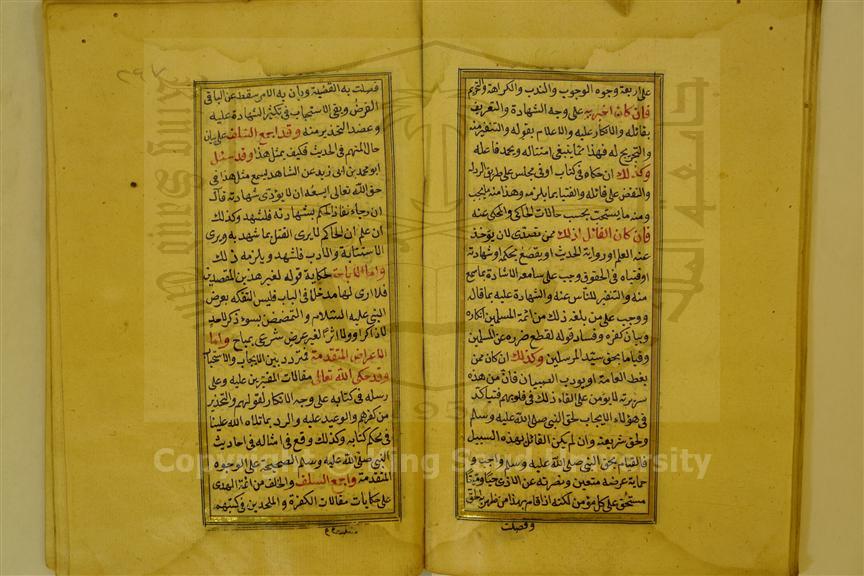 على اربعة وجوه الوجوب والندب والكراهة والتحريم
فان كان اخبر به على وجه الشهادة والتعريف
بقائله والانكار عليه والاعلام بقوله والتنفير منه
والتجريح له فهذا مما ينبغى امتثاله ويحمد فاعله
وكذلك ان حكاه فى كتاب او فى مجلس على طريق الرد له
والنقض على قائله والفتيا بما يلزمه وهذا منه ما يجب
ومنه ما يستحب بحسب حالات الحاكى والمحكى عنه
فان كان القائل لذلك ممن تصدى لان يؤخذ
عنه العلم او رواية الحديث او يقطع بحكمه او شهادته
او فتياه فى الحقوق وجب على سامعه الاشادة بما سمع
منه والتنفير للناس عنه والشهادة عليه بما قاله
ووجب على من بلغه ذلك من ائمة المسلمين انكاره
وبيان كفره وفساد قوله لقطع ضرره عن المسلمين
وقياما بحق سيد المرسلين وكذلك ان كان ممن
يعظ العامة او يؤدب الصبيان فان من هذه
سريرته لا يؤمن على القاء ذلك فى قلوبهم فيتأكد
فى هؤلاء الايجاب لحق النبى صلى الله عليه وسلم
ولحق شريعته وان لم يكن القائل بهذه السبيل
فالقيام بحق النبى صلى الله عليه وسلم واجب و
حماية عرضه متعين ونصرته عن الاذى حيا وميتا
مستحق على كل مؤمن لكنه اذا قام بهذا من ظهر به الحق
وفصلت
٢٩٧
فصلت به القضية وبان به الامر سقط عن الباقى
الفرض وبقى الاستحباب فى تكثير الشهادة عليه
وعضد التحذير منه وقد اجمع السلف على بيان
حال المتهم فى الحديث فكيف بمثل هذا وقد سئل
ابو محمد بن ابى زيد عن الشاهد يسمع مثل هذا فى
حق الله تعالى ايسعه ان لا يؤدى شهادته قال
ان رجاء نفاذ الحكم بشهادته فليشهد وكذلك
ان علم ان الحاكم لا يرى القتل بما شهد به ويرى
الاستتابة والادب فليشهد ويلزمه ذلك
واما الاباحة لحكاية قوله لغير هذين المقصدين
فلا ارى لها مدخلا فى الباب فليس التفكه بعرض
النبى عليه السلام والتمضمض بسوء ذكره لاحد
لا ذاكرا ولا اثرا لغير غرض شرعى بمباح واما
الاغراض المتقدمة فتردد بين الايجاب والاستحباب
وقد حكى الله تعالى مقالات المفترين عليه وعلى
رسله فى كتابه على وجه الانكار لقولهم والتحذير
من كفرهم والوعيد عليه والرد بما تلاه الله علينا
فى محكم كتابه وكذلك وقع فى امثاله فى احاديث
النبى صلى الله عليه وسلم الصحيحة على الوجوه
المتقدمة واجمع السلف والخلف من ائمة الهدى
على حكايات مقالات الكفرة والملحدين فى كتبهم
Copyright © King Saud University